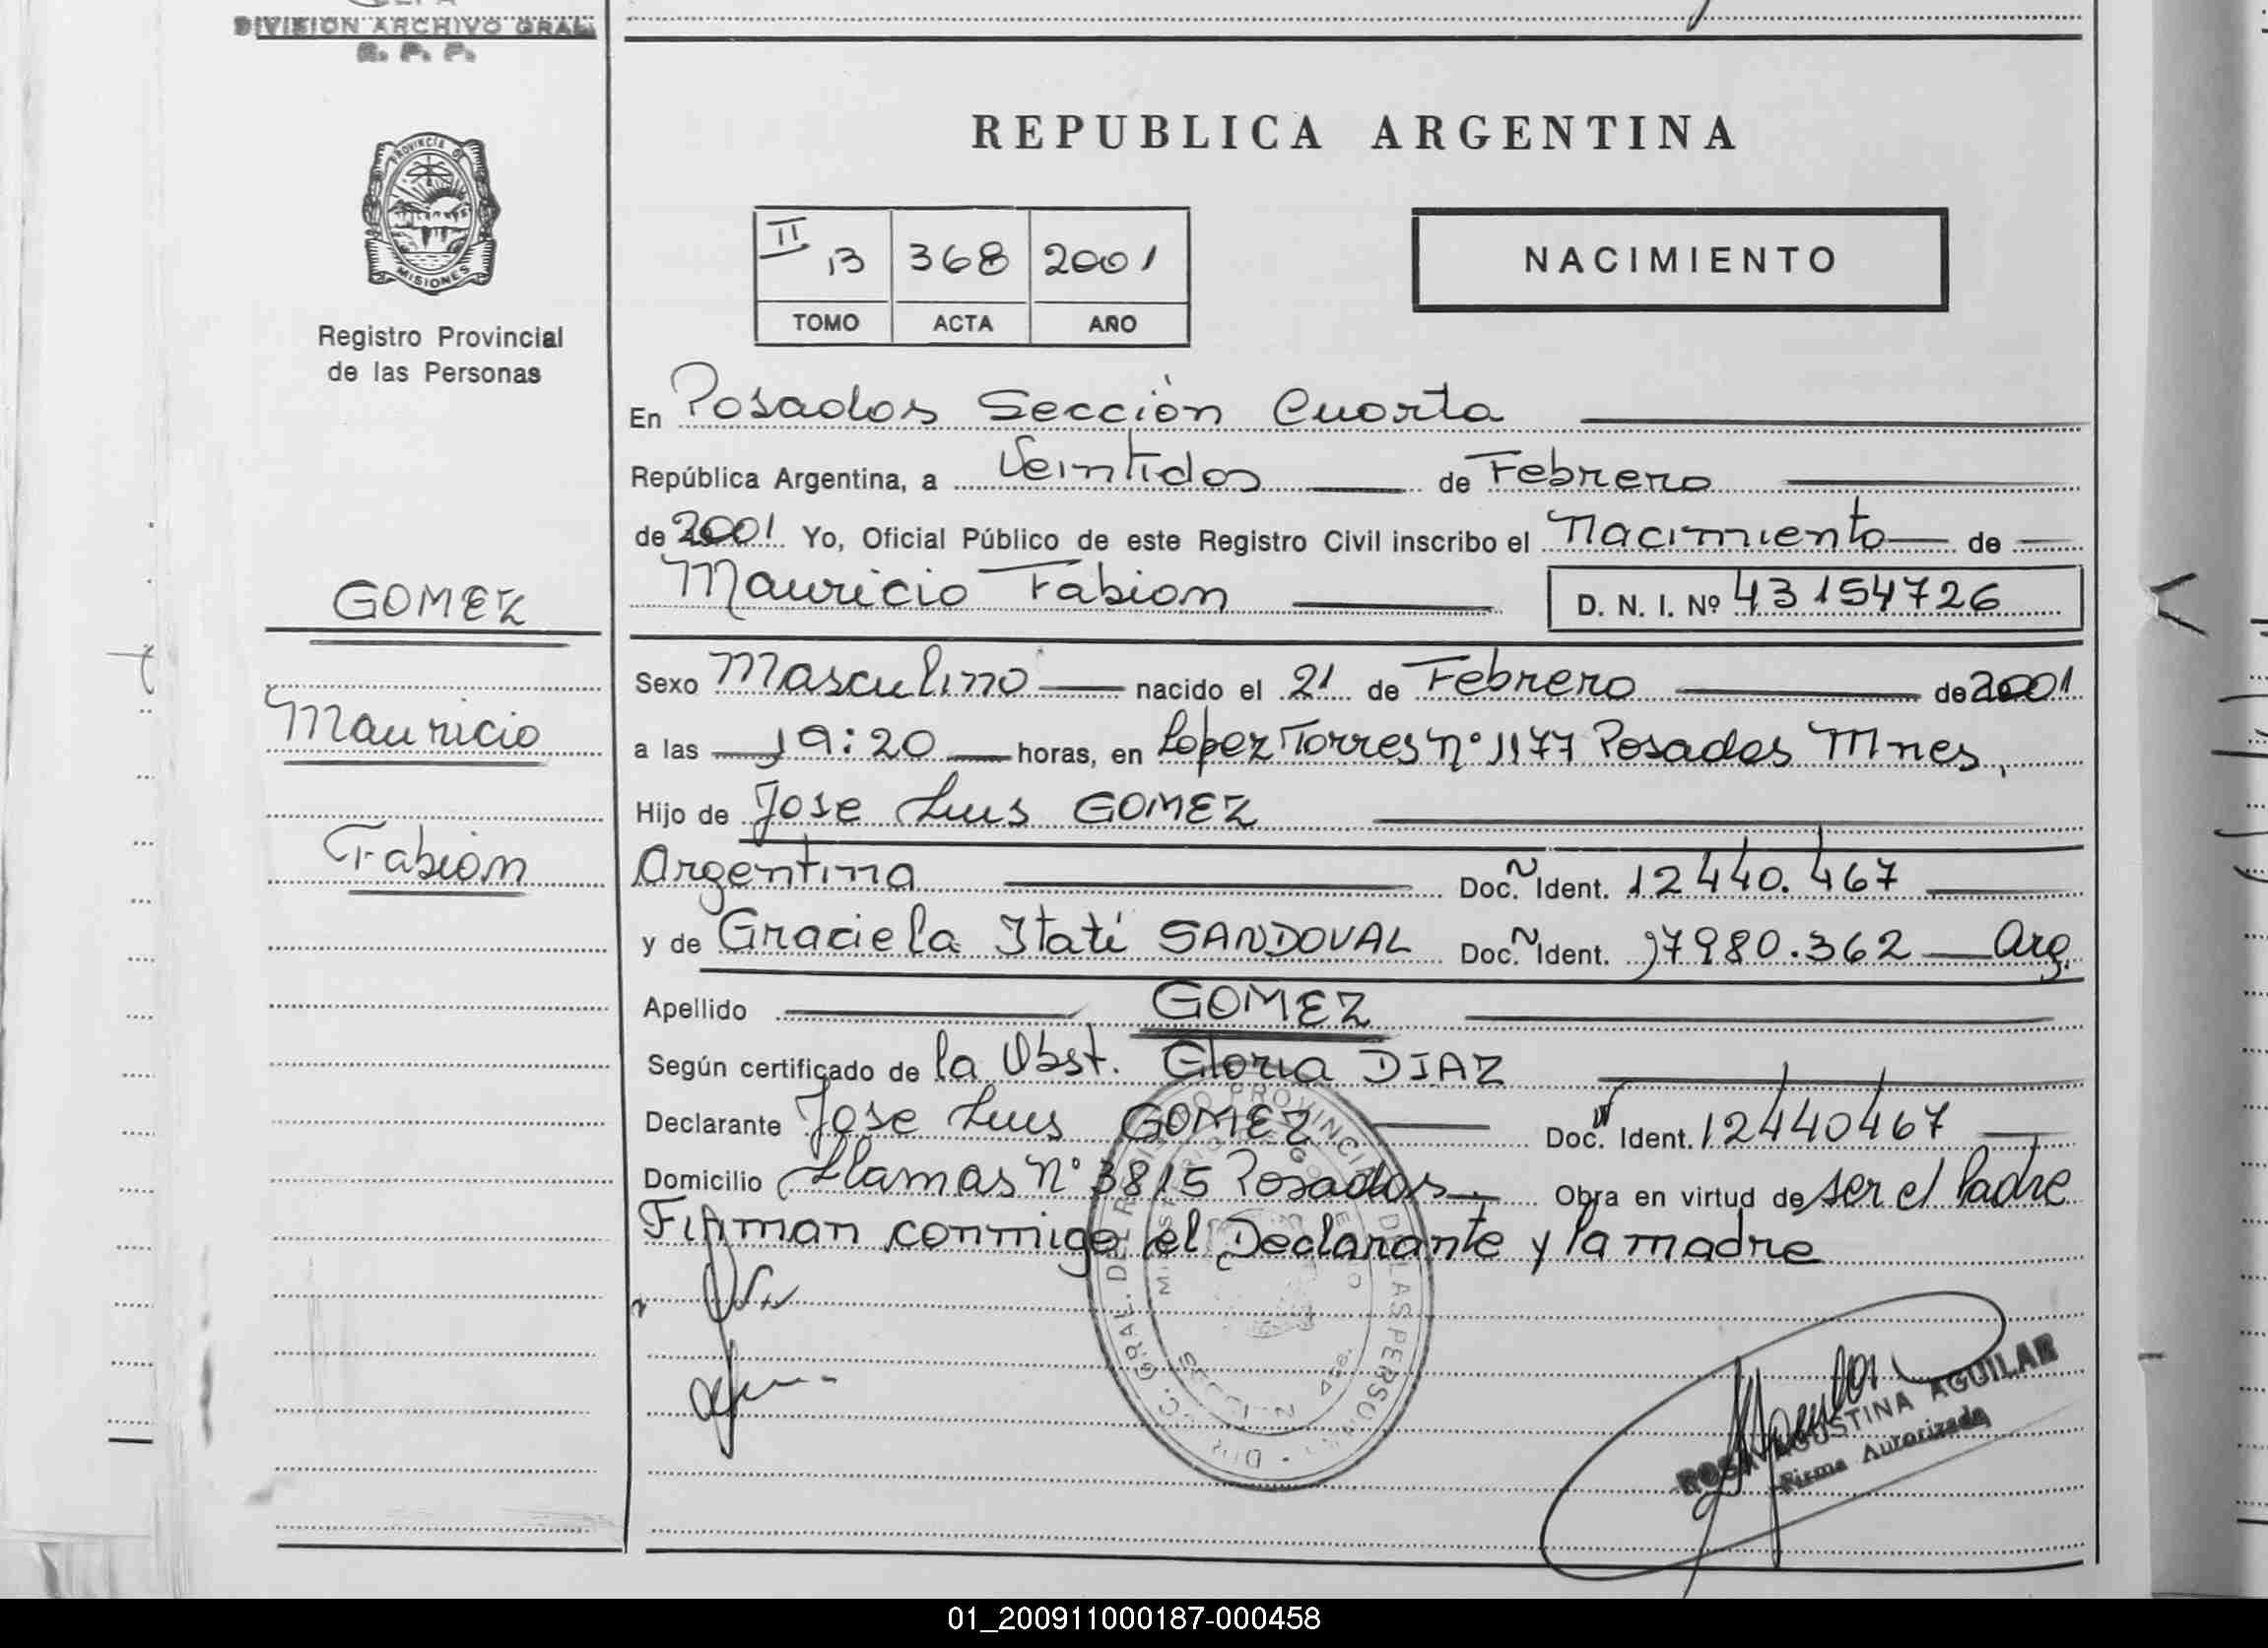 DIVISION ARCHIVO GRAL.
R. P. P.
PROVINCIA D
MISIONES
Registro Provincial
de las Personas
GOMEZ
Mauricio
Fabian
REPUBLICA ARGENTINA
II B 368 2001
TOMO ACTA AÑO
NACIMIENTO
En Posadas Sección Cuarta
República Argentina, a Veintidos de Febrero
de 2001 Yo, Oficial Público de este Registro Civil inscribo el Nacimiento de
Mauricio Fabian D. N. I. Nº 43154726
Sexo Masculino nacido el 21 de Febrero de 2001
a las 19:20 horas, en Lopez Torres nº 1177 Posadas Mnes,
Hijo de Jose Luis GOMEZ
Argentina Doc. Ident. 12440.467
y de Graciela Itatí SANDOVAL Doc. Ident. 17980.362 Arg.
Apellido GOMEZ
Según certificado de la Obst. Gloria DIAZ
Declarante Jose Luis GOMEZ Doc. Ident. 12440467
Domicilio Llamas Nº 3815 Posadas. Obra en virtud de ser el Padre
Firman conmigo el Declarante y la madre
DIREC. GRAL. DEL REGISTRO PROVINCIAL DE LAS PERSONAS
MINISTERIO DE GOBIERNO
ROSA AGUSTINA AGUILAR
Firma Autorizada
01_200911000187-000458